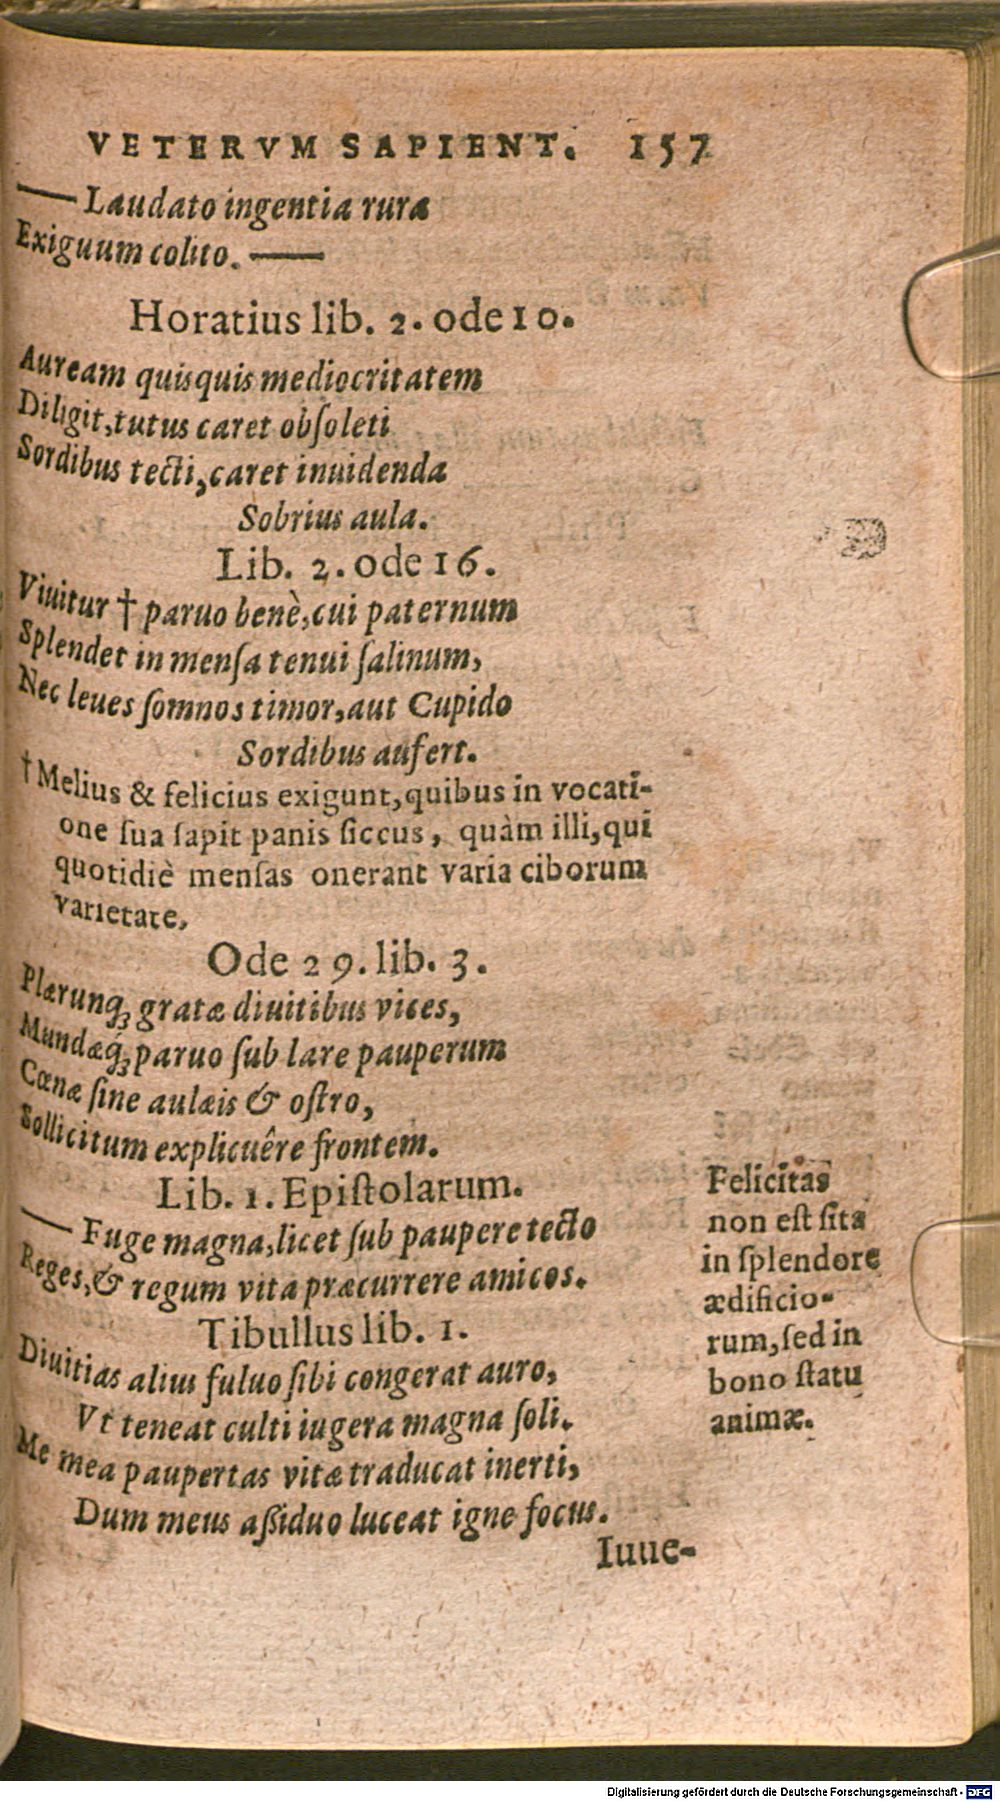 VETERVM SAPIENT. 157
— Laudato ingentia rura
Exiguum colito. —
Horatius lib. 2. ode 10.
Auream quisquis mediocritatem
Diligit, tutus caret obſoleti
Sordibus tecti, caret inuidenda
Sobrius aula.
Lib. 2. ode 16.
Viuitur † paruo benè, cui paternum
Splendet in menſa tenui ſalinum,
Nec leues ſomnos timor, aut Cupido
Sordibus aufert.
† Melius & felicius exigunt, quibus in vocati-
one ſua ſapit panis ſiccus, quàm illi, qui
quotidiè menſas onerant varia ciborum
varietate,
Ode 29. lib. 3.
Plærunq́ꝫ gratæ diuitibus vices,
Mundæq́ꝫ paruo ſub lare pauperum
Cœnæ ſine aulæis & oſtro,
Sollicitum explicuêre frontem.
Lib. 1. Epiſtolarum.
— Fuge magna, licet ſub paupere tecto
Reges, & regum vita præcurrere amicos.
Tibullus lib. 1.
Diuitias alius fuluo ſibi congerat auro,
Vt teneat culti iugera magna ſoli.
Me mea paupertas vitæ traducat inerti,
Dum meus aßiduo luceat igne focus.
Iuue-
Felicitas
non eſt ſita
in ſplendore
ædificio-
rum, ſed in
bono ſtatu
animæ.
Digitalisierung gefördert durch die Deutsche Forschungsgemeinschaft - DFG